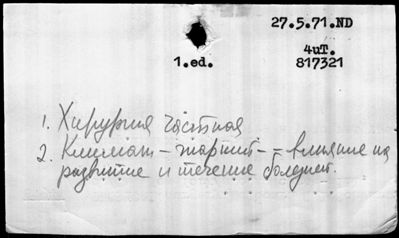 27.5.71.ND
4иТ.
1.ed. 817321
1. Хирургия частная
2. Климат - жаркий - = влияние на
развитие и течение болезней.